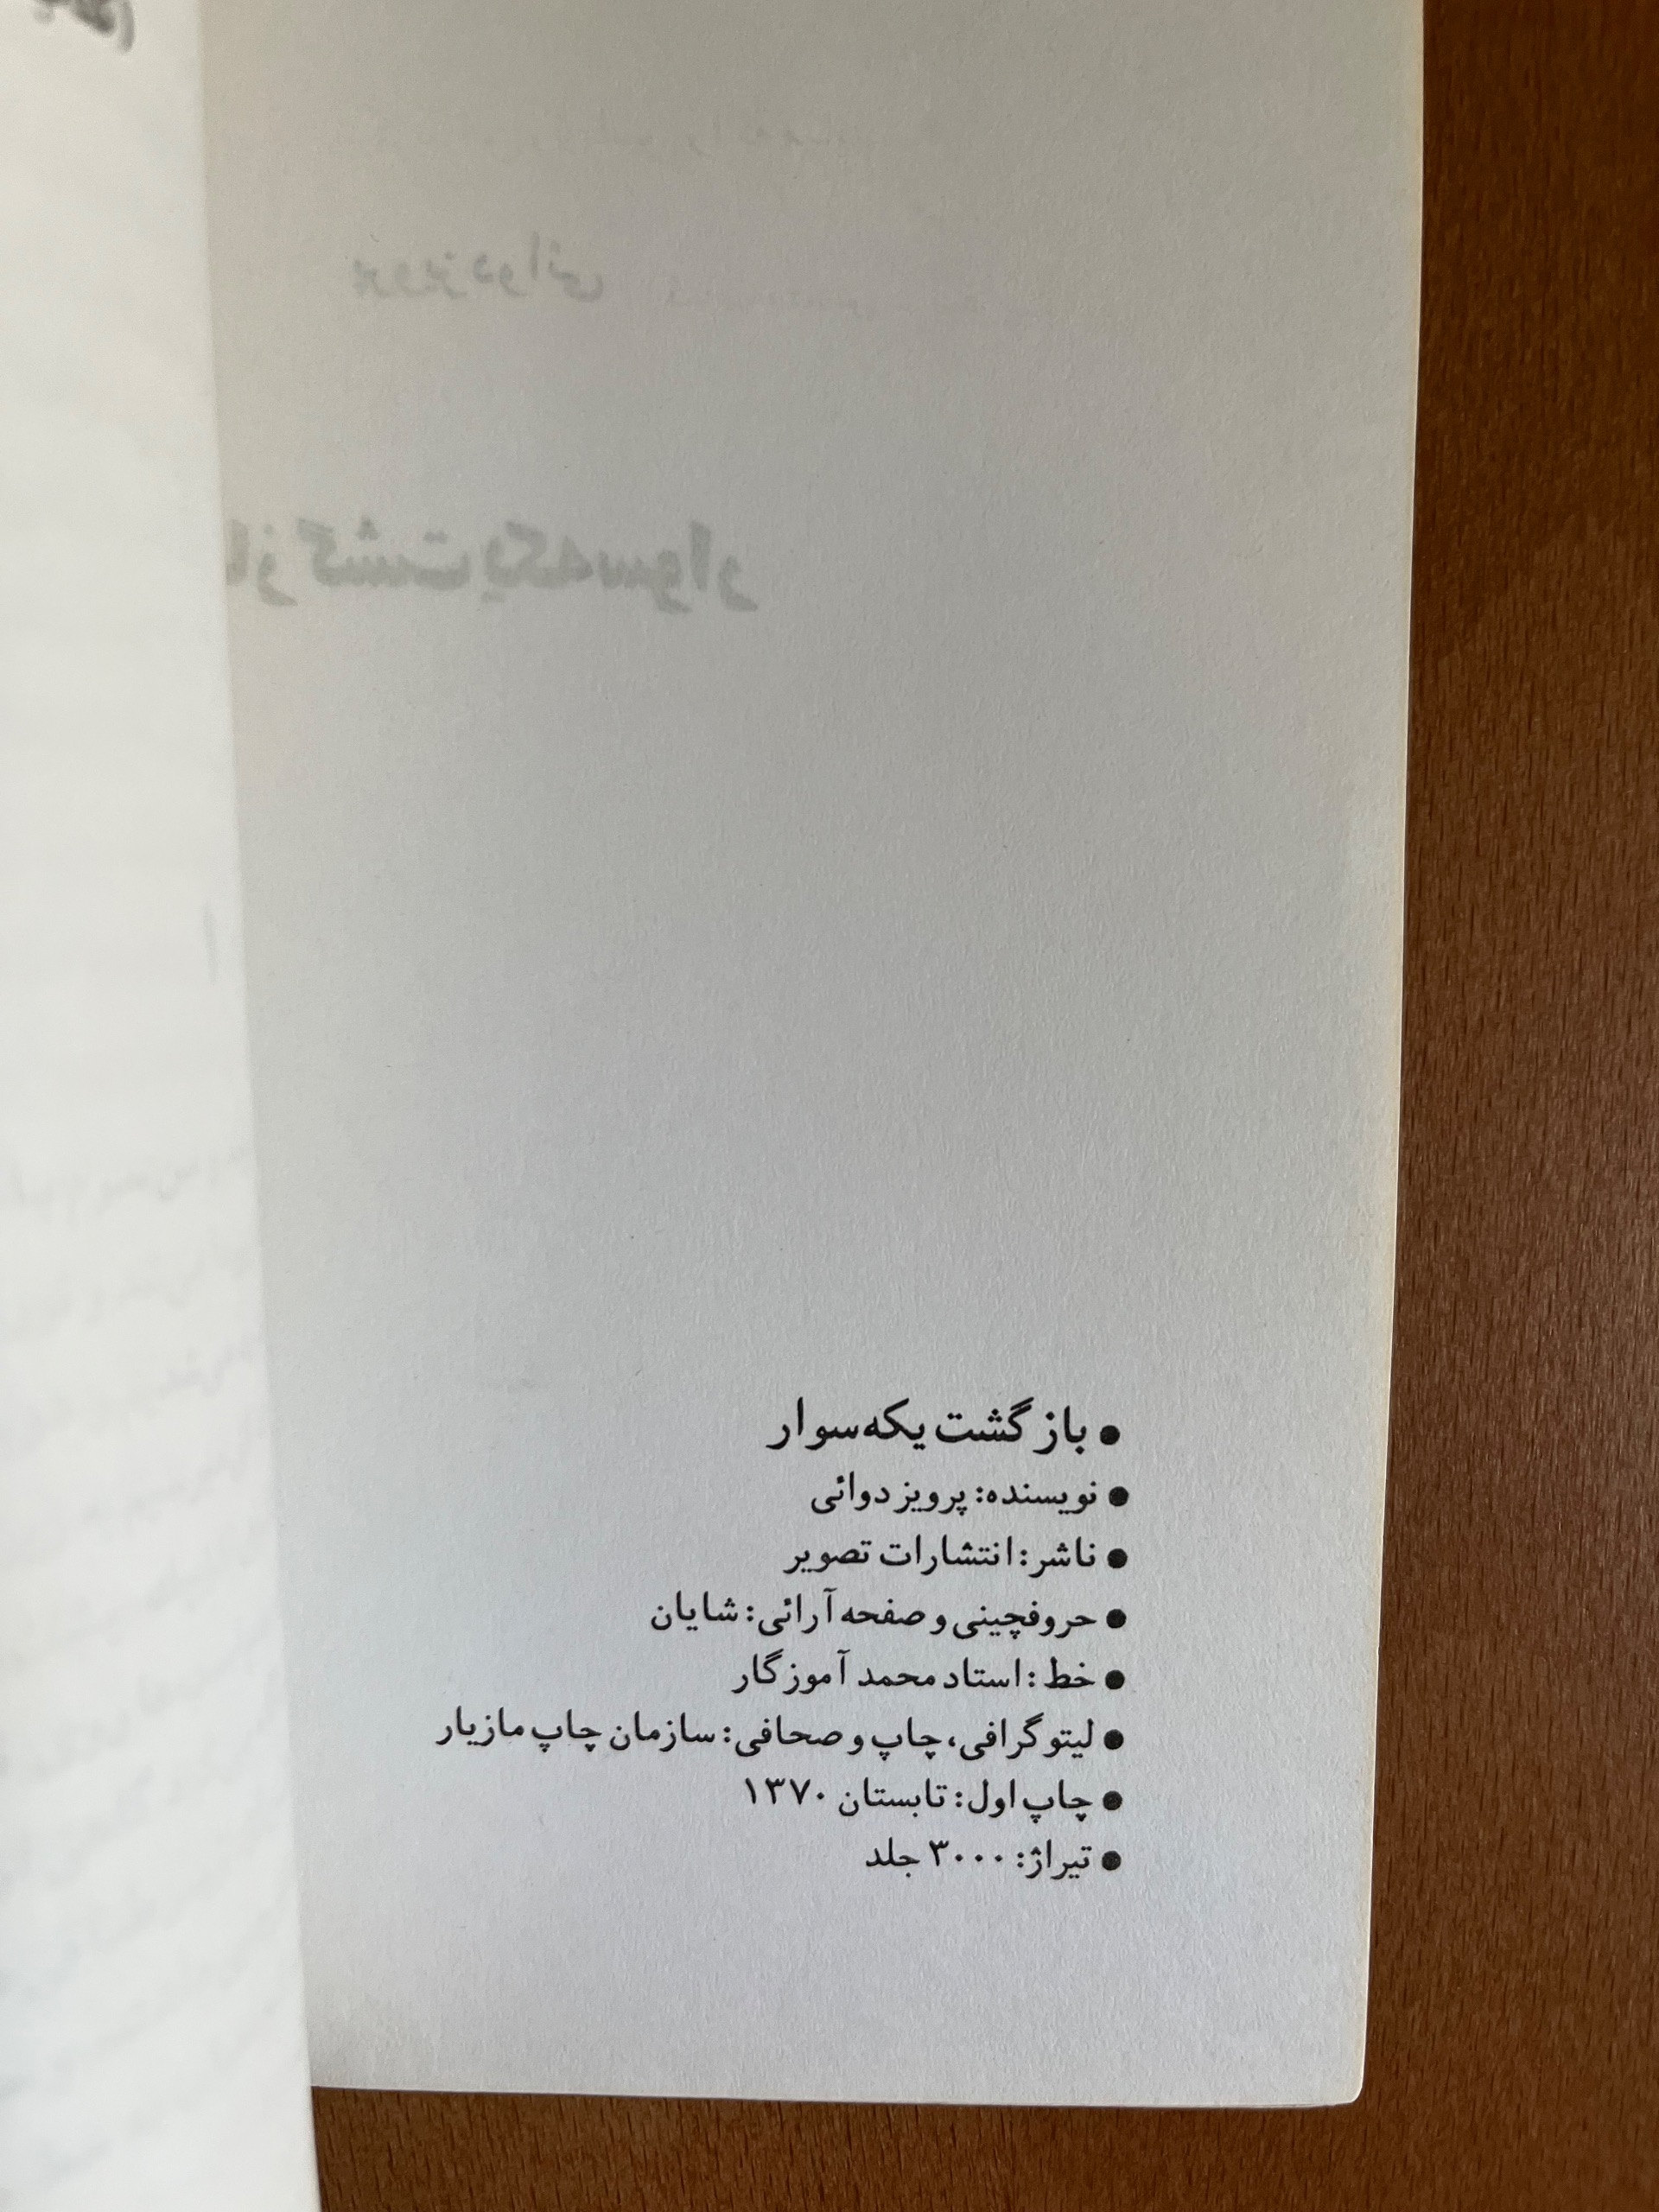 ● بازگشت یکه‌سوار
● نویسنده: پرویز دوائی
● ناشر: انتشارات تصویر
● حروفچینی و صفحه آرائی: شایان
● خط: استاد محمد آموزگار
● لیتوگرافی، چاپ و صحافی: سازمان چاپ مازیار
● چاپ اول: تابستان ۱۳۷۰
● تیراژ: ۳۰۰۰ جلد